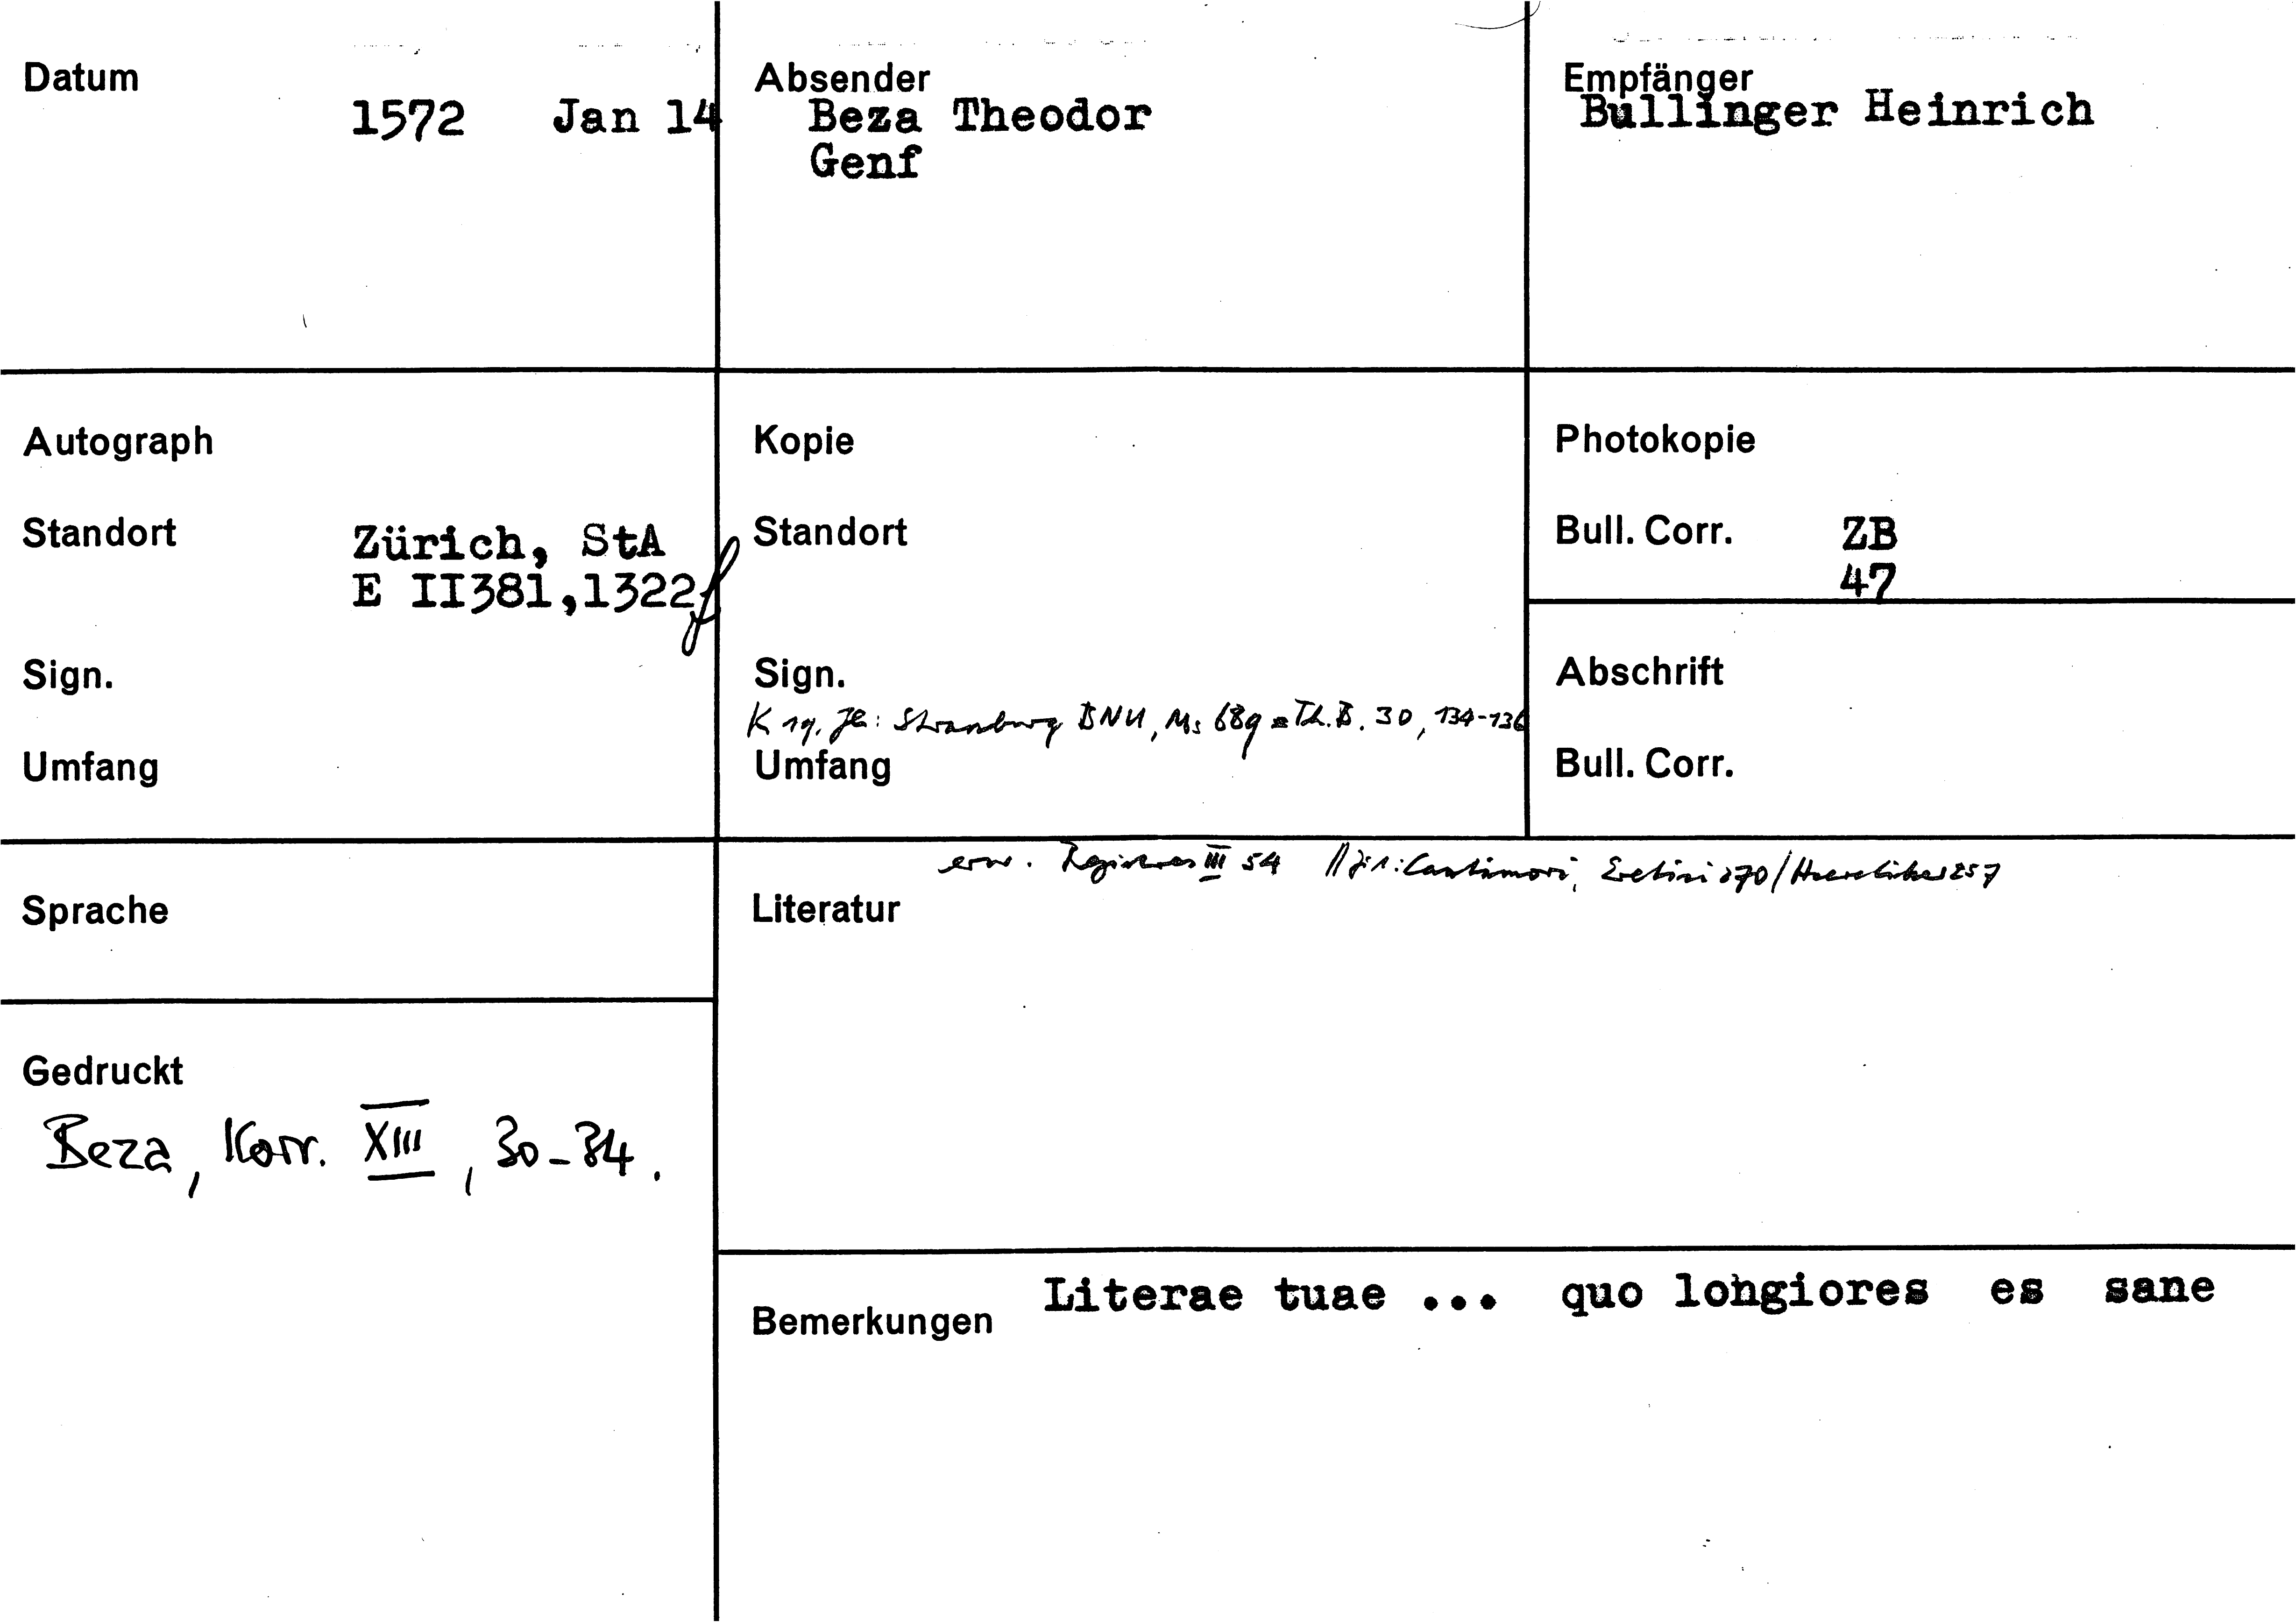 Datum
1572 Jan 14
Absender
Beza Theodor
Genf
Empfänger
Bullinger Heinrich
Autograph
Standort
Zürich, StA
E II381,1322f
Sign.
Umfang
Kopie
Standort
Sign.
K 19. Jh: Strassburg BNU, Ms 689 = Th.B. 30, 134-136
Umfang
Photokopie
Bull. Corr. ZB
47
Abschrift
Bull. Corr.
Sprache
erw. Registres III 54 // Cantimori, Eretici 270/Haeretiker 257
Literatur
Gedruckt
Beza, Korr. XIII, 30-34.
Bemerkungen
Literae tuae ... quo longiores es sane